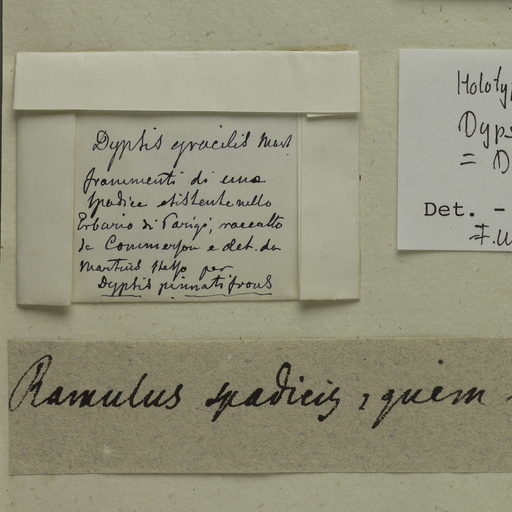 Dyptis gracilis Mart.
frammenti di una
spadice esistente nello
Erbario di Parigi, raccolto
da Commerson e det. da
Martius stesso per
Dyptis pinnatifrons
Holoty
Dyps
= D
Det. -
Ramulus spadicis, quem